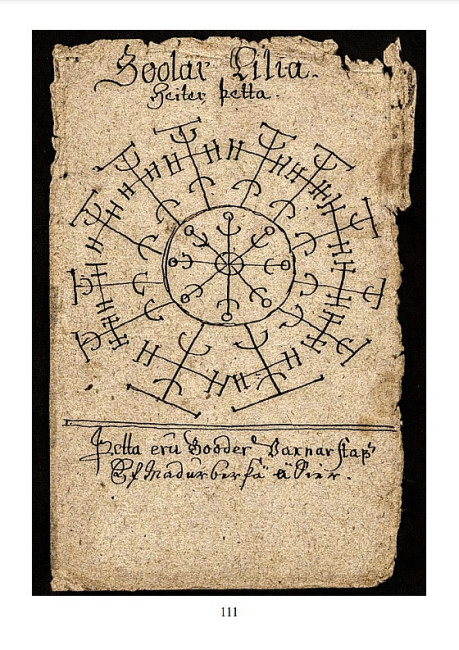 Soolar Lilia.
Heiter þetta.
Þetta eru Gooder Varnar
Ef Madur ber þä ä Sier.
111